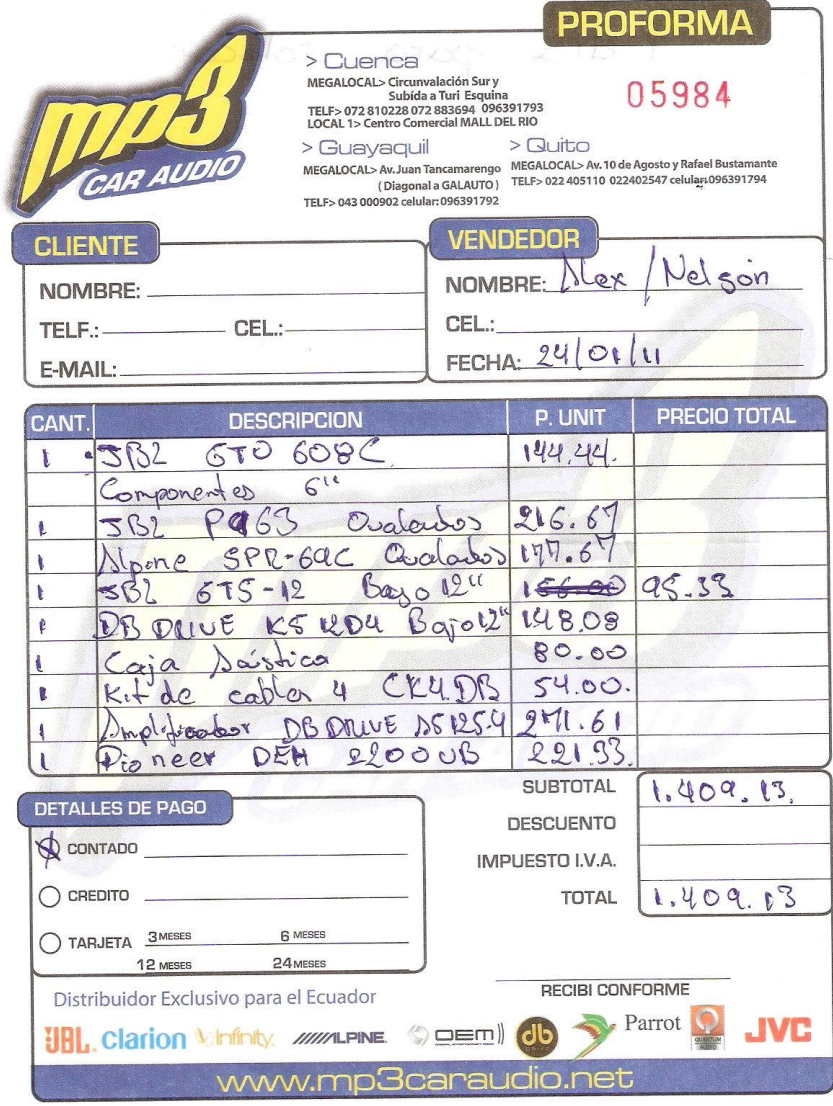 PROFORMA
mp3
CAR AUDIO
> Cuenca
MEGALOCAL> Circunvalación Sur y
Subída a Turi Esquina
TELF> 072 810228 072 883694 096391793
LOCAL 1> Centro Comercial MALL DEL RIO
05984
> Guayaquil
MEGALOCAL> Av. Juan Tancamarengo
( Diagonal a GALAUTO )
TELF> 043 000902 celular: 096391792
> Quito
MEGALOCAL> Av. 10 de Agosto y Rafael Bustamante
TELF> 022 405110 022402547 celular: 096391794
CLIENTE
NOMBRE:
TELF.: CEL.:
E-MAIL:
VENDEDOR
NOMBRE: Alex / Nelson
CEL.:
FECHA: 24/01/11
CANT. DESCRIPCION P. UNIT PRECIO TOTAL
1 JBL GTO 608C 144.44.
Componentes 6"
1 JBL P963 Ovalados 216.67
1 Alpine SPR-69C Ovalados 177.67
1 JBL GT5-12 Bajo 12" 156.00 95.33
1 DB DRIVE K5 12D4 Bajo 12" 148.08
1 Caja Acústica 80.00
1 Kit de cables 4 CK4.DB 54.00.
1 Amplificador DB DRIVE A5 125.4 271.61
1 Pioneer DEH 2200UB 221.33.
SUBTOTAL 1.409.13.
DESCUENTO
IMPUESTO I.V.A.
TOTAL 1.409.13
DETALLES DE PAGO
CONTADO
CREDITO
TARJETA 3 MESES 6 MESES
12 MESES 24 MESES
RECIBI CONFORME
Distribuidor Exclusivo para el Ecuador
JBL Clarion Infinity ALPINE OEM db Parrot QUANTUM AUDIO JVC
www.mp3caraudio.net